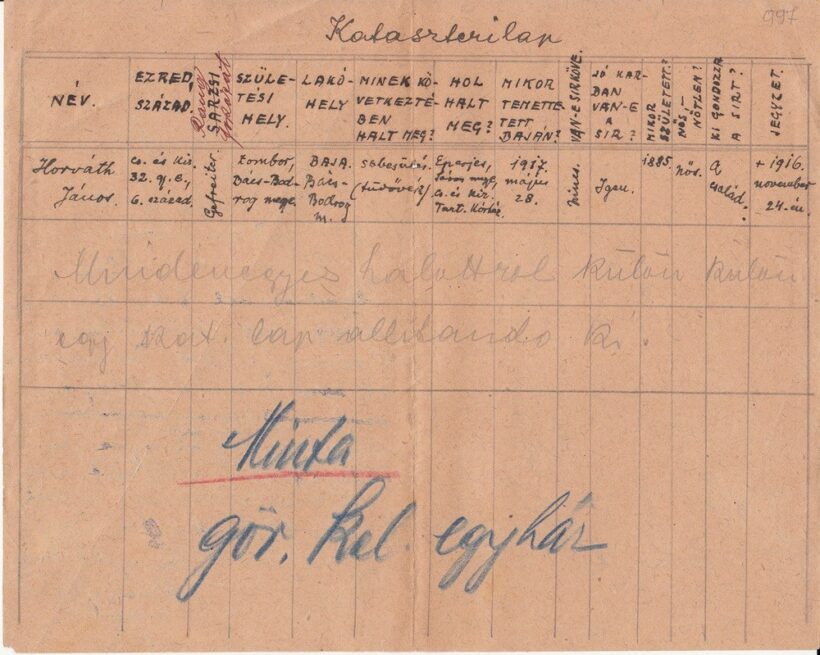 997
Kataszterilap
NÉV.
EZRED,
SZÁZAD.
SARZSI
Rang
fokozat
SZÜLE-
TÉSI
HELY.
LAKÓ-
HELY
MINEK KÖ-
VETKEZTÉ-
BEN
HALT MEG?
HOL
HALT
MEG?
MIKOR
TEMETTE-
TETT
BAJÁN?
VAN-E SIRKÖVE.
JÓ KAR-
BAN
VAN-E
A
SIR?
MIKOR
SZÜLETETT?
NÖS
NŐTLEN?
KI GONDOZZA
A SIRT?
JEGYZET.
Horváth
János.
cs. és kir.
32. gy. e.,
6. század.
Gefreiter.
Zombor,
Bács-Bod-
rog megye
BAJA.
Bács-
Bodrog
m.
sebesülés.
(tüdővész)
Eperjes,
Sáros megye,
cs. és kir.
Tart. Kórház.
1917.
május
28.
nincs.
Igen.
1885.
nös.
a
család.
+ 1916.
november
24-én.
Mindenegyes halottrol külön külön
egy kat. lap allitando ki.
Minta
gör. kel. egyház